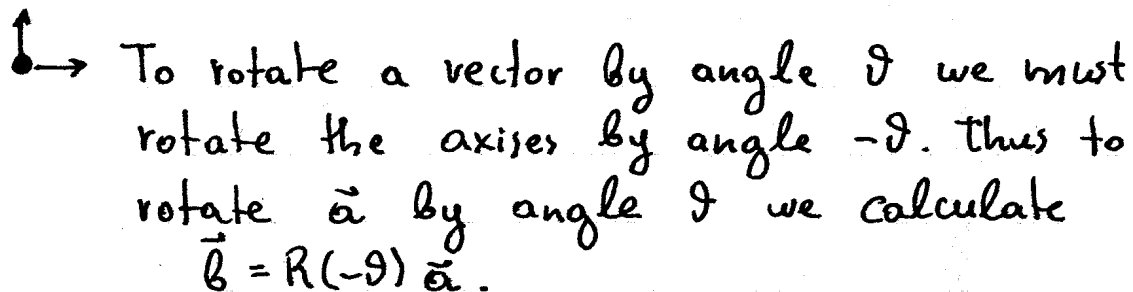 To rotate a vector by angle ϑ we must
rotate the axises by angle -ϑ. Thus to
rotate a⃗ by angle ϑ we calculate
b⃗ = R(-ϑ) a⃗.